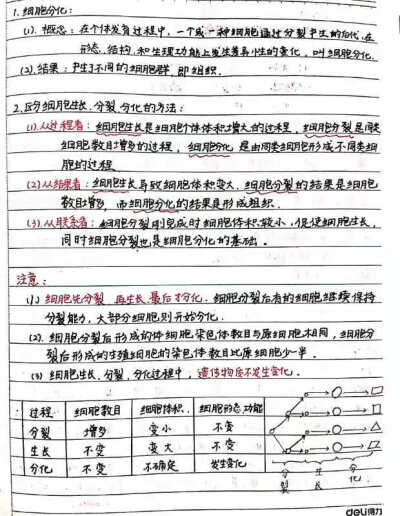 1. 细胞分化:
(1). 概念: 在个体发育过程中, 一个或一种细胞通过分裂产生的后代, 在
形态. 结构. 和生理功能上发生差异性的变化, 叫细胞分化.
(2). 结果: 产生了不同的细胞群, 即组织.
2. 区分细胞生长. 分裂. 分化的方法:
(1). 从过程看: 细胞生长是细胞个体体积增大的过程, 细胞分裂是同类
细胞数目增多的过程, 细胞分化 是由同类细胞形成不同类细
胞的过程
(2) 从结果看: 细胞生长导致细胞体积变大. 细胞分裂的结果是细胞
数目增多, 而细胞分化的结果是形成组织.
(3). 从联系看: 细胞分裂刚完成时细胞体积较小, 促使细胞生长,
同时细胞分裂也是细胞分化的基础.
注意:
(1) 细胞先分裂. 再生长. 最后才分化. 细胞分裂后有的细胞继续保持
分裂能力, 大部分细胞则开始分化.
(2). 细胞分裂后形成的体细胞染色体数目与原细胞相同, 细胞分
裂后形成的生殖细胞的染色体数目比原细胞少一半.
(3) 细胞生长、分裂、分化过程中, 遗传物质不发生变化.
过程 细胞数目 细胞体积 细胞形态功能
分裂 增多 变小 不变
生长 不变 变大 不变
分化 不变 不确定 发生变化
分裂 生长 分化
deli得力